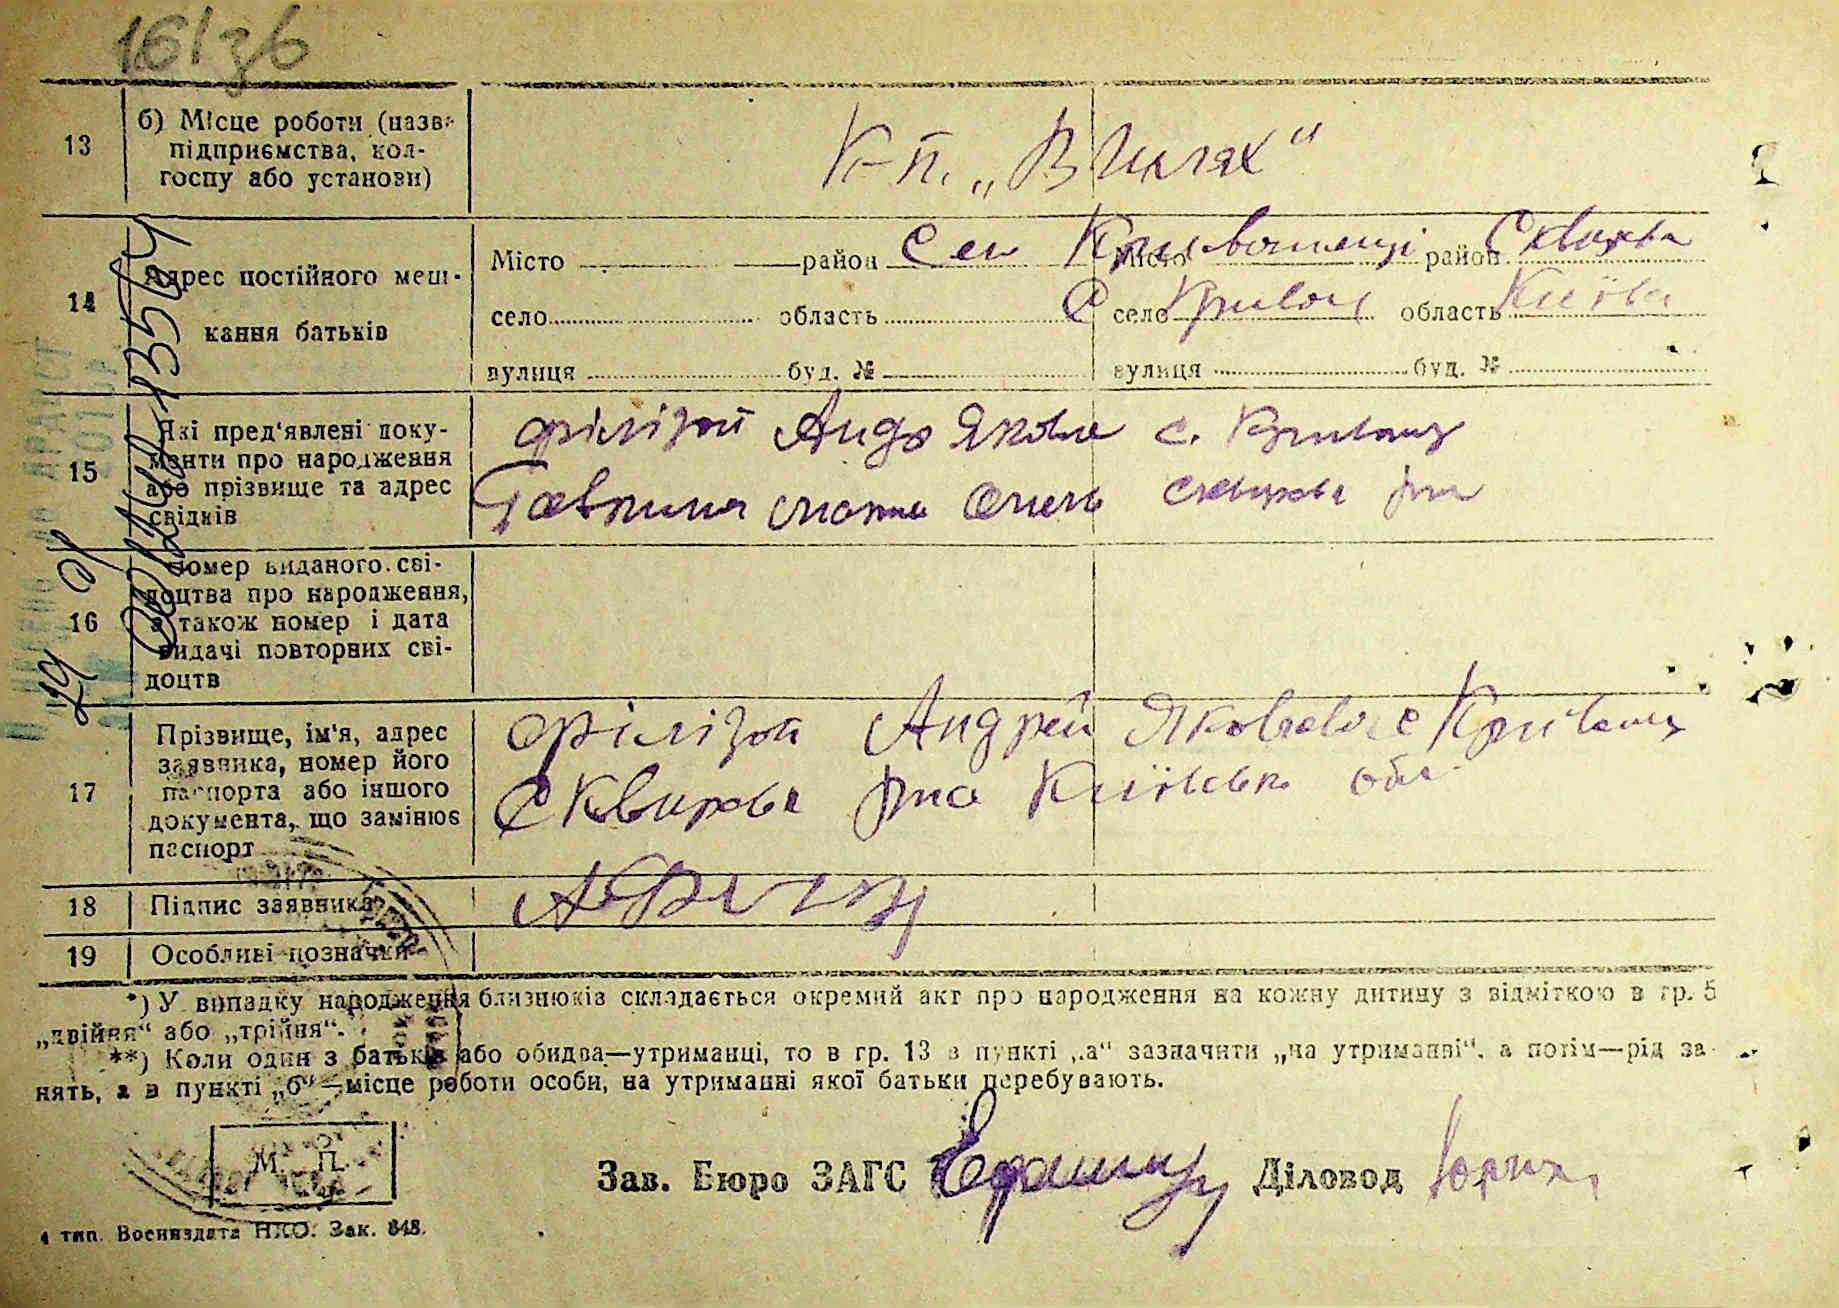 13 б) Місце роботи (назва
підприємства, кол-
госпу або установи)
К-п. „В Шлях“
14 Адрес постійного меш-
кання батьків
Місто район Сел Кривошеинці Місто район Сквирськ
село область С село Кривош область Київськ
вулиця буд. № вулиця буд. №
15 Які пред'явлені доку-
менти про народження
або прізвище та адрес
свідків
Філізой Андр Якове с. Кривош
Сквирськ р-на
16 Номер виданого сві-
доцтва про народження,
а також номер і дата
видачі повторних сві-
доцтв
17 Прізвище, ім'я, адрес
заявника, номер його
паспорта або іншого
документа, що замінює
паспорт
Філізой Андрей Яковлев с Кривош
Сквирськ р-на Київськ обл
18 Підпис заявника
19 Особливі позначки
*) У випадку народження близнюків складається окремий акт про народження на кожну дитину з відміткою в гр. 5
„двійня“ або „трійня“.
**) Коли один з батьків або обидва—утриманці, то в гр. 13 в пункті „а“ зазначити „на утриманні“, а потім—рід за-
нять, а в пункті „б“—місце роботи особи, на утриманні якої батьки перебувають.
М. П.
Зав. Бюро ЗАГС Діловод
4 тип. Воениздата НКО. Зак. 848.